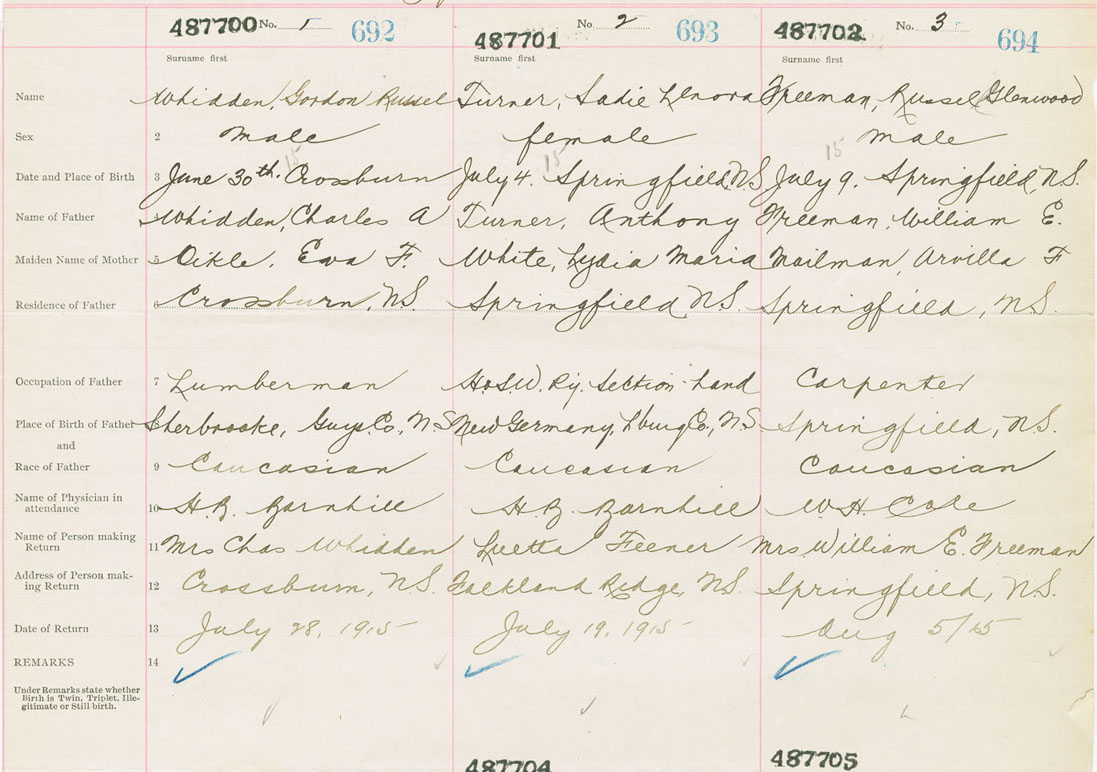 487700 No. 1 692 487701 No. 2 693 487702 No. 3 694
Surname first Surname first Surname first
Name Whidden, Gordon Russel Turner, Sadie Lenora Freeman, Russel Glenwood
Sex 2 male female male
15 15 15
Date and Place of Birth 3 June 30th. Crossburn July 4. Springfield, N.S. July 9. Springfield, N.S.
Name of Father Whidden, Charles A Turner, Anthony Freeman, William E.
Maiden Name of Mother 5 Oikle, Eva F. White, Lydia Maria Mailman, Arvilla F
Residence of Father 6 Crossburn, N.S. Springfield, N.S. Springfield, N.S.
Occupation of Father 7 Lumberman H&S.W. Ry. Section-hand Carpenter
Place of Birth of Father Sherbrooke, Guys. Co. N.S New Germany, Lburg Co., N.S Springfield, N.S.
and
Race of Father 9 Caucasian Caucasian Caucasian
Name of Physician in
attendance 10 H.B. Barnhill H.B. Barnhill W.H. Cole
Name of Person making
Return 11 Mrs Chas Whidden Luetta Feener Mrs. William E. Freeman
Address of Person mak-
ing Return 12 Crossburn, N.S. Falkland Ridge, N.S. Springfield, N.S.
Date of Return 13 July 28, 1915 July 19, 1915 Aug 5/15
REMARKS 14
Under Remarks state whether
Birth is Twin, Triplet, Ille-
gitimate or Still-birth.
487704 487705